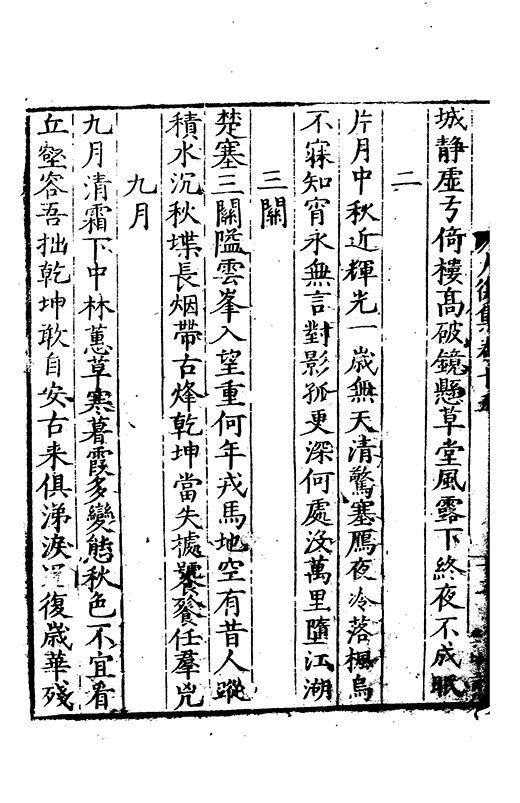 城静虛亏倚樓高破鏡懸草堂風露下終夜不成眠
二
片月中秋近輝光一歲無天清驚塞鴈夜冷落楓烏
不寐知宵永無言對影孤更深何處没萬里墮江湖
三關
楚塞三關隘雲峯入望重何年戎馬地空有昔人蹤
積水沉秋堞長烟帶古烽乾坤當失㨿饕餮任羣兇
九月
九月清霜下中林蕙草寒暮霞多變態秋色不宜看
丘壑容吾拙乾坤敢自安古来俱涕淚復歲華殘